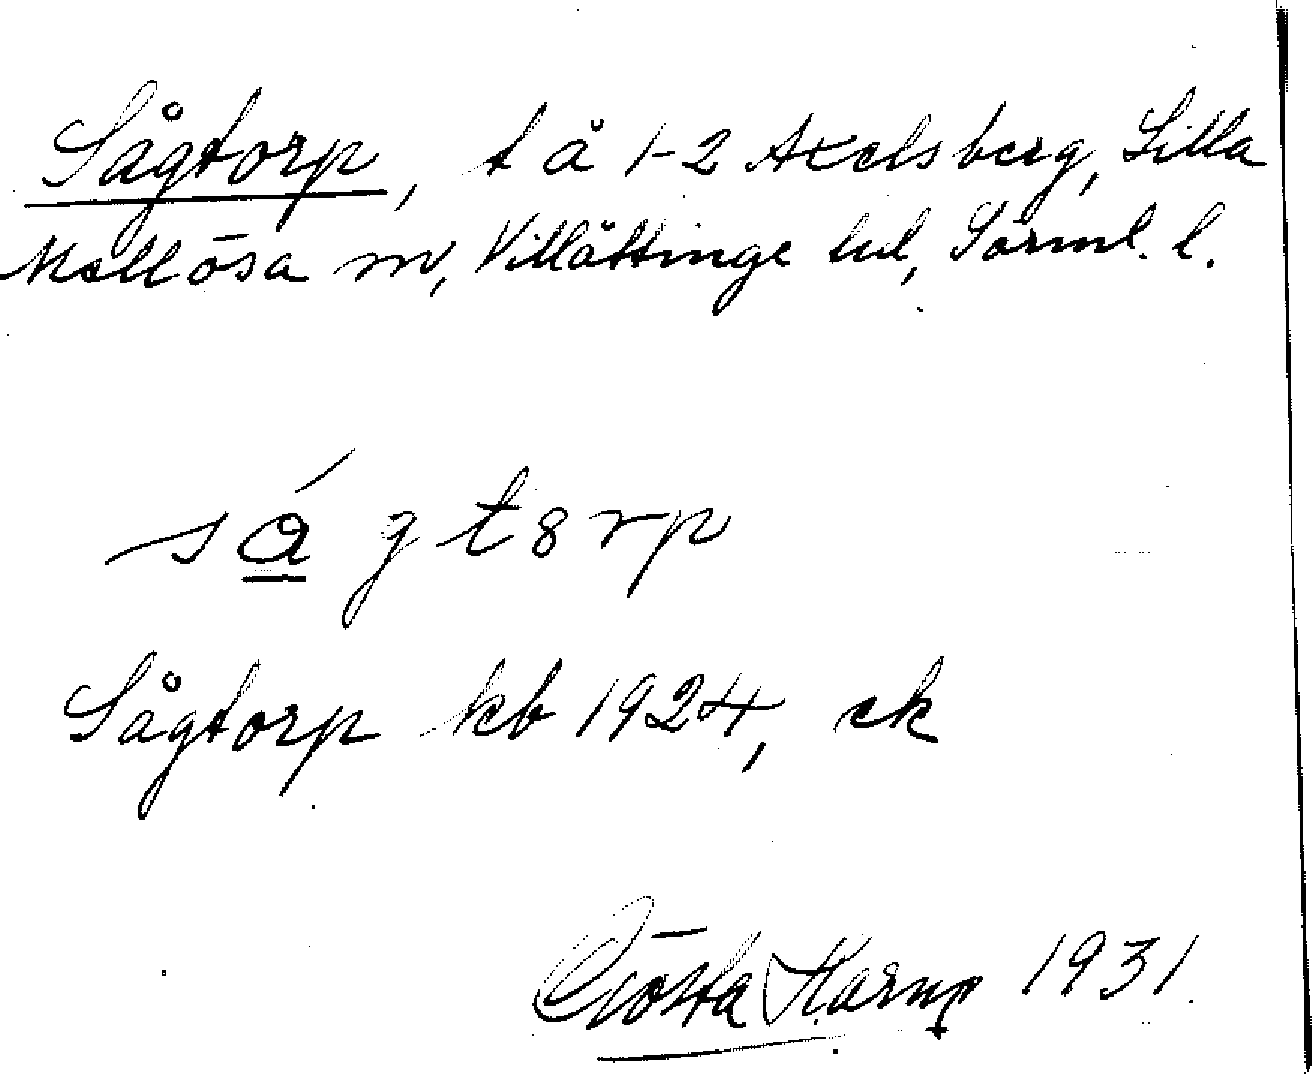 Sågtorp, t å 1-2 Axelsberg, Lilla
Mellösa sn, Villåttinge hd, Sörml. l.
sǻgt8rp
Sågtorp kb 1924, ek
Gösta 1931